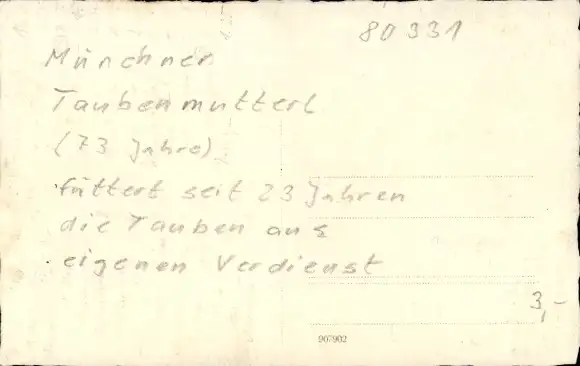 80331
Münchner
Taubenmutterl
(73 Jahre)
füttert seit 23 Jahren
die Tauben aus
eigenen Verdienst
3,-
907902